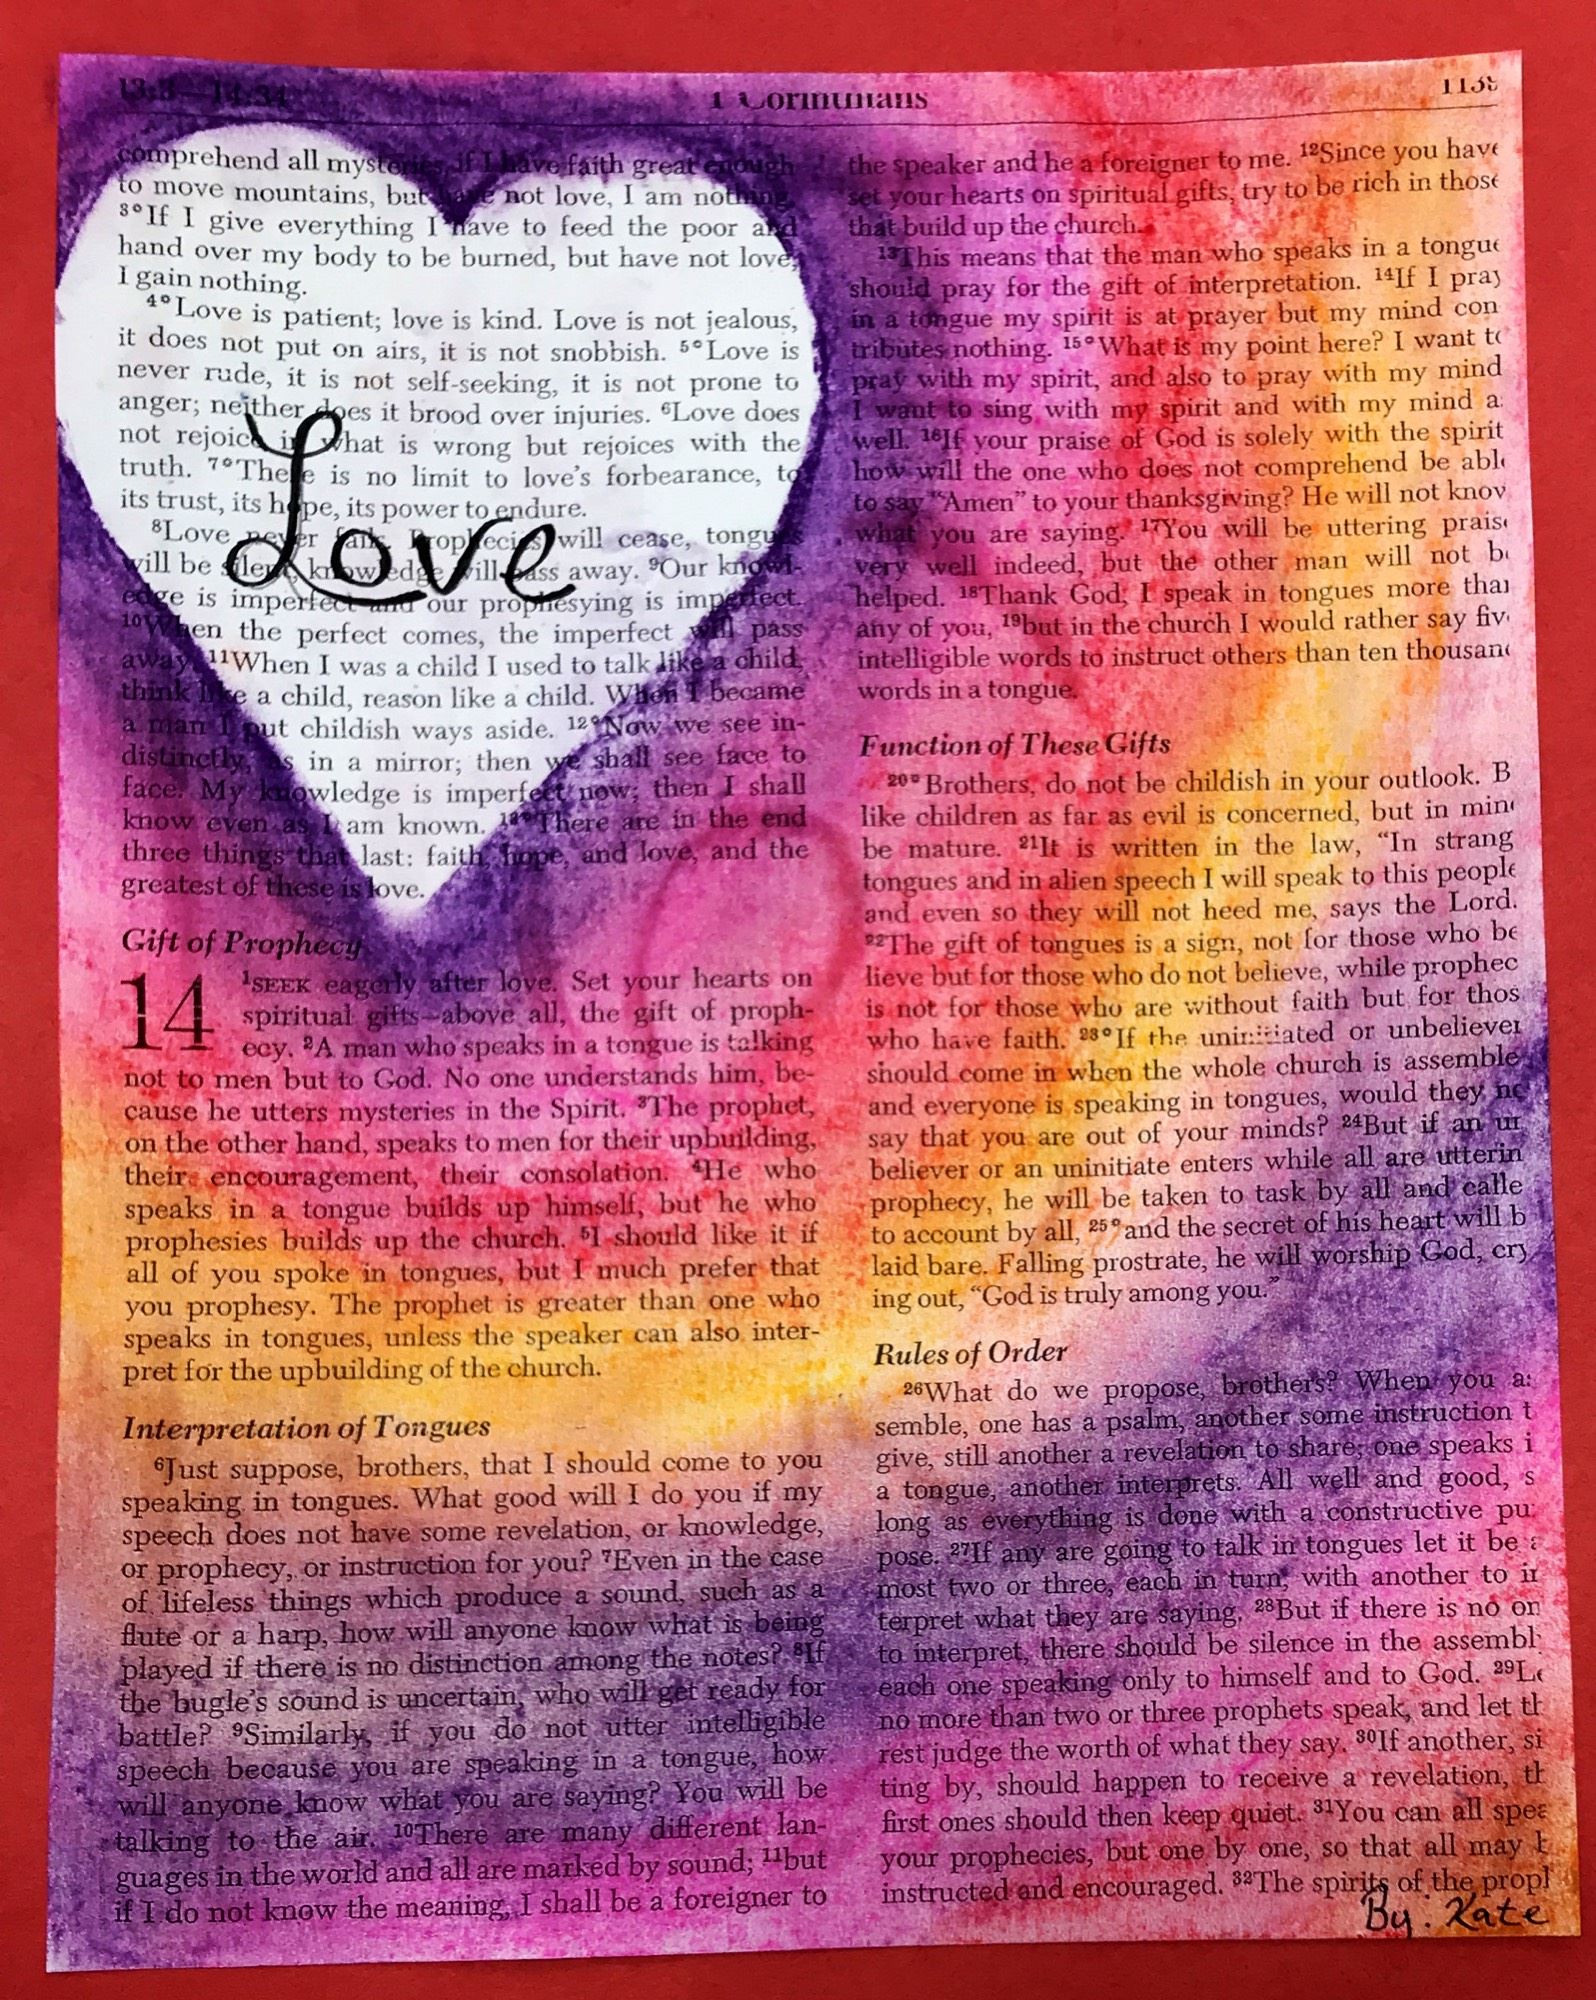 13:3—14:34
1 Corinthians
comprehend all mysteries, if I have faith great enough
to move mountains, but have not love, I am nothing.
3°If I give everything I have to feed the poor and
hand over my body to be burned, but have not love,
I gain nothing.
4°Love is patient; love is kind. Love is not jealous,
it does not put on airs, it is not snobbish. 5°Love is
never rude, it is not self-seeking, it is not prone to
anger; neither does it brood over injuries. 6Love does
not rejoice in what is wrong but rejoices with the
truth. 7°There is no limit to love's forbearance, to
its trust, its hope, its power to endure.
Love
8Love never fails. Prophecies will cease, tongues
will be silent, knowledge will pass away. 9Our knowl-
edge is imperfect and our prophesying is imperfect.
10When the perfect comes, the imperfect will pass
away. 11When I was a child I used to talk like a child,
think like a child, reason like a child. When I became
a man I put childish ways aside. 12°Now we see in-
distinctly, as in a mirror; then we shall see face to
face. My knowledge is imperfect now; then I shall
know even as I am known. 13°There are in the end
three things that last: faith, hope, and love, and the
greatest of these is love.
Gift of Prophecy
14 1SEEK eagerly after love. Set your hearts on
spiritual gifts—above all, the gift of proph-
ecy. 2A man who speaks in a tongue is talking
not to men but to God. No one understands him, be-
cause he utters mysteries in the Spirit. 3The prophet,
on the other hand, speaks to men for their upbuilding,
their encouragement, their consolation. 4He who
speaks in a tongue builds up himself, but he who
prophesies builds up the church. 5I should like it if
all of you spoke in tongues, but I much prefer that
you prophesy. The prophet is greater than one who
speaks in tongues, unless the speaker can also inter-
pret for the upbuilding of the church.
Interpretation of Tongues
6Just suppose, brothers, that I should come to you
speaking in tongues. What good will I do you if my
speech does not have some revelation, or knowledge,
or prophecy, or instruction for you? 7Even in the case
of lifeless things which produce a sound, such as a
flute or a harp, how will anyone know what is being
played if there is no distinction among the notes? 8If
the bugle's sound is uncertain, who will get ready for
battle? 9Similarly, if you do not utter intelligible
speech because you are speaking in a tongue, how
will anyone know what you are saying? You will be
talking to the air. 10There are many different lan-
guages in the world and all are marked by sound; 11but
if I do not know the meaning, I shall be a foreigner to
the speaker and he a foreigner to me. 12Since you have
set your hearts on spiritual gifts, try to be rich in those
that build up the church.
13This means that the man who speaks in a tongue
should pray for the gift of interpretation. 14If I pray
in a tongue my spirit is at prayer but my mind con
tributes nothing. 15°What is my point here? I want to
pray with my spirit, and also to pray with my mind
I want to sing with my spirit and with my mind a
well. 16If your praise of God is solely with the spirit
how will the one who does not comprehend be able
to say "Amen" to your thanksgiving? He will not know
what you are saying. 17You will be uttering praise
very well indeed, but the other man will not be
helped. 18Thank God, I speak in tongues more than
any of you, 19but in the church I would rather say five
intelligible words to instruct others than ten thousand
words in a tongue.
Function of These Gifts
20°Brothers, do not be childish in your outlook. B
like children as far as evil is concerned, but in min
be mature. 21It is written in the law, "In strang
tongues and in alien speech I will speak to this people
and even so they will not heed me, says the Lord.
22The gift of tongues is a sign, not for those who be
lieve but for those who do not believe, while prophec
is not for those who are without faith but for thos
who have faith. 23°If the uninitiated or unbeliever
should come in when the whole church is assemble
and everyone is speaking in tongues, would they no
say that you are out of your minds? 24But if an un
believer or an uninitiate enters while all are utterin
prophecy, he will be taken to task by all and calle
to account by all, 25°and the secret of his heart will b
laid bare. Falling prostrate, he will worship God, cry
ing out, "God is truly among you."
Rules of Order
26What do we propose, brothers? When you as
semble, one has a psalm, another some instruction t
give, still another a revelation to share; one speaks i
a tongue, another interprets. All well and good, s
long as everything is done with a constructive pu
pose. 27If any are going to talk in tongues let it be a
most two or three, each in turn, with another to in
terpret what they are saying. 28But if there is no on
to interpret, there should be silence in the assembl
each one speaking only to himself and to God. 29Le
no more than two or three prophets speak, and let th
rest judge the worth of what they say. 30If another, si
ting by, should happen to receive a revelation, th
first ones should then keep quiet. 31You can all spea
your prophecies, but one by one, so that all may b
instructed and encouraged. 32The spirits of the proph
By: Kate